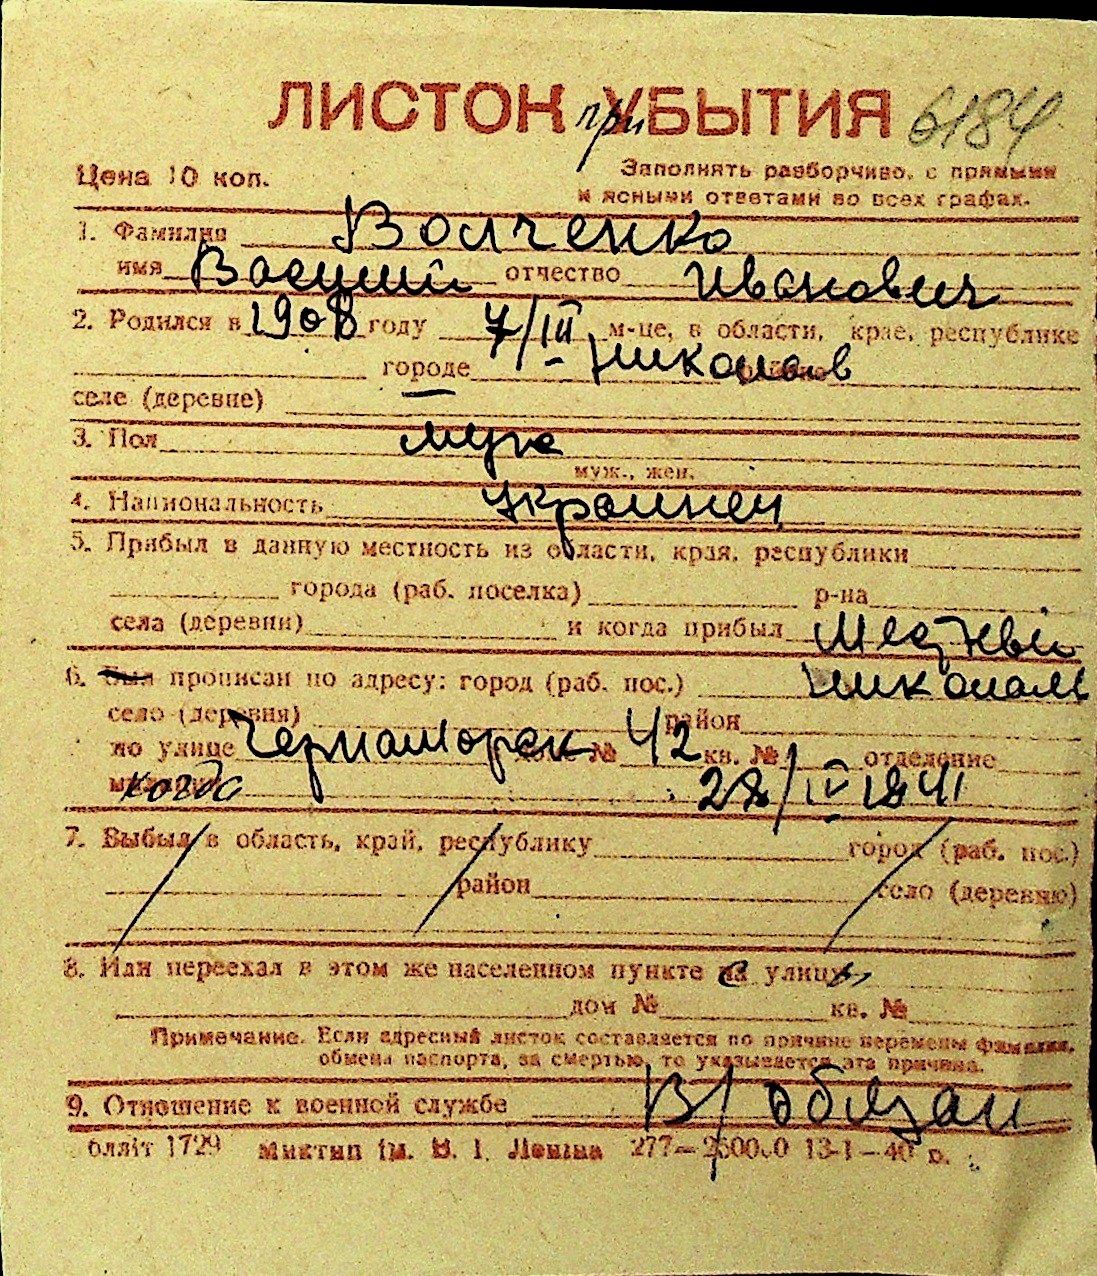 ЛИСТОН при УБЫТИЯ 6184
Цена 10 коп.
Заполнять разборчиво, с прямыми
и ясными ответами во всех графах.
1. Фамилия Волченко
имя Василий отчество Иванович
2. Родился в 1908 году 7/III м-це, в области, крае, республике
городе Николаев
селе (деревне)
3. Пол муж
муж., жен.
4. Национальность Украинец
5. Прибыл в данную местность из области, края, республики
города (раб. поселка) р-на
села (деревни) и когда прибыл Местный
6. Был прописан по адресу: город (раб. пос.) Николаев
село (деревня) район
по улице Черноморск № 42 кв. № отделение
когда 28/IV 1941
7. Выбыл в область, край, республику город (раб. пос.)
район село (деревню)
8. Или переехал в этом же населенном пункте с улицы
дом № кв. №
Примечание. Если адресный листок составляется по причине перемены фамилии,
обмена паспорта, за смертью, то указывается эта причина.
9. Отношение к военной службе В/обязан
1729 Миктип ім. В. І. Леніна 277— 13-1—40 р.